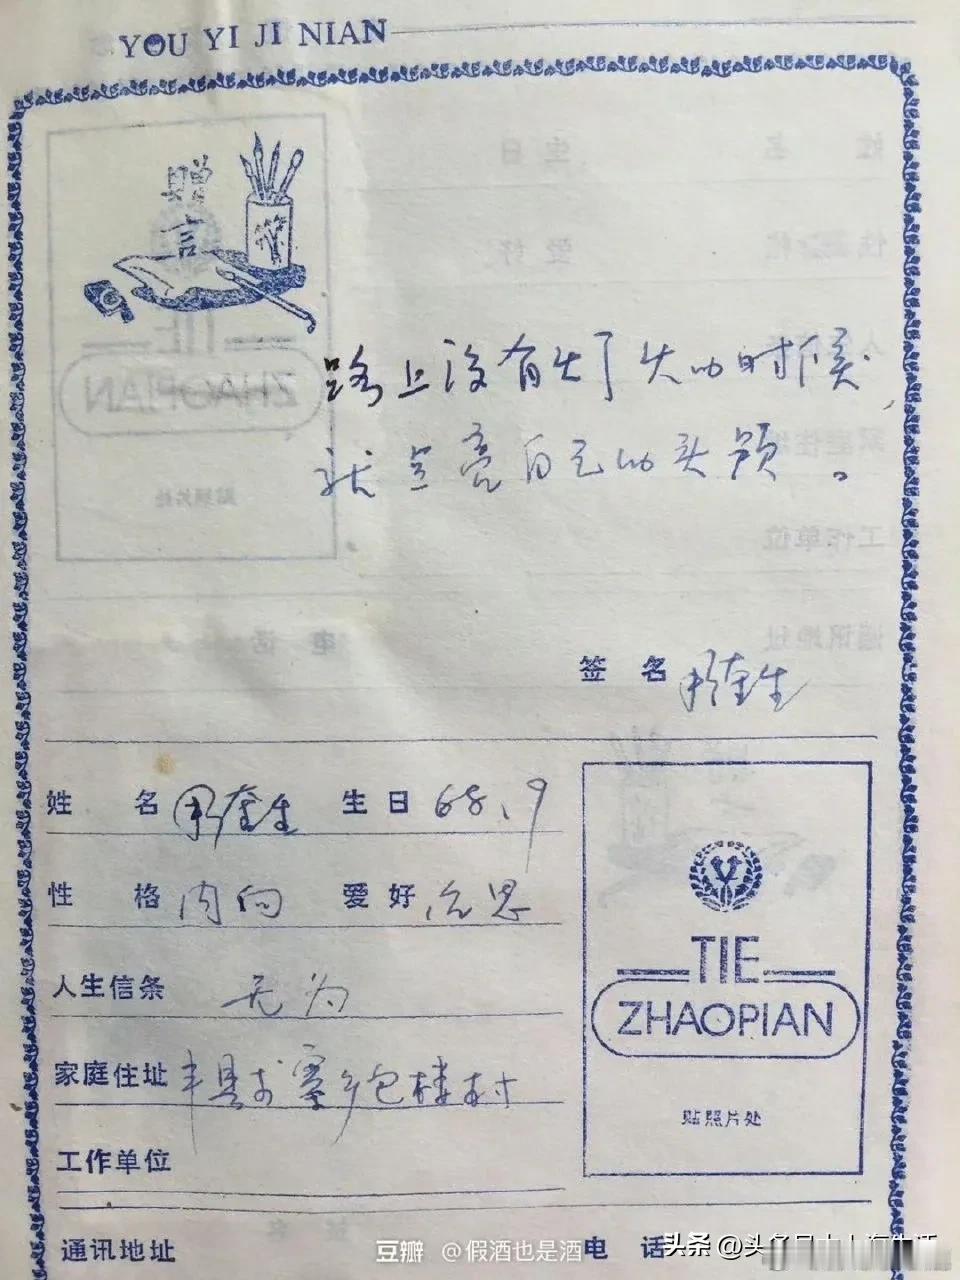 YOU YI JI NIAN
赠
言
路上没有生了火的时候,
就点亮自己的头颅。
签 名 邢奎生
姓 名 邢奎生 生日 68.9
性 格 内向 爱好 沉思
人生信条 无为
家庭住址 丰县 寨乡包楼村
TIE
ZHAOPIAN
贴照片处
工作单位
通讯地址 电 话
豆瓣 @假酒也是酒
头条 @头条